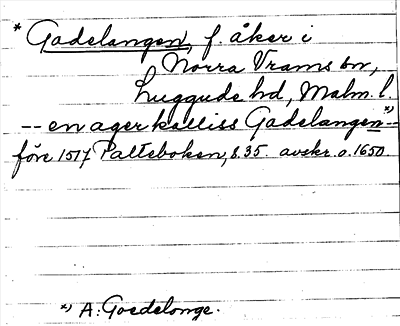 * Gadelangen, f. åker i
Norra Vrams sn,
Luggude hd, Malm. l.
-- en ager kalliss Gadelangen *) --
före 1517 Palteboken, s. 35. avskr. o. 1650.
*) A: Goedelonge.